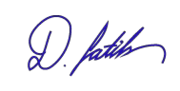 D. Fatih